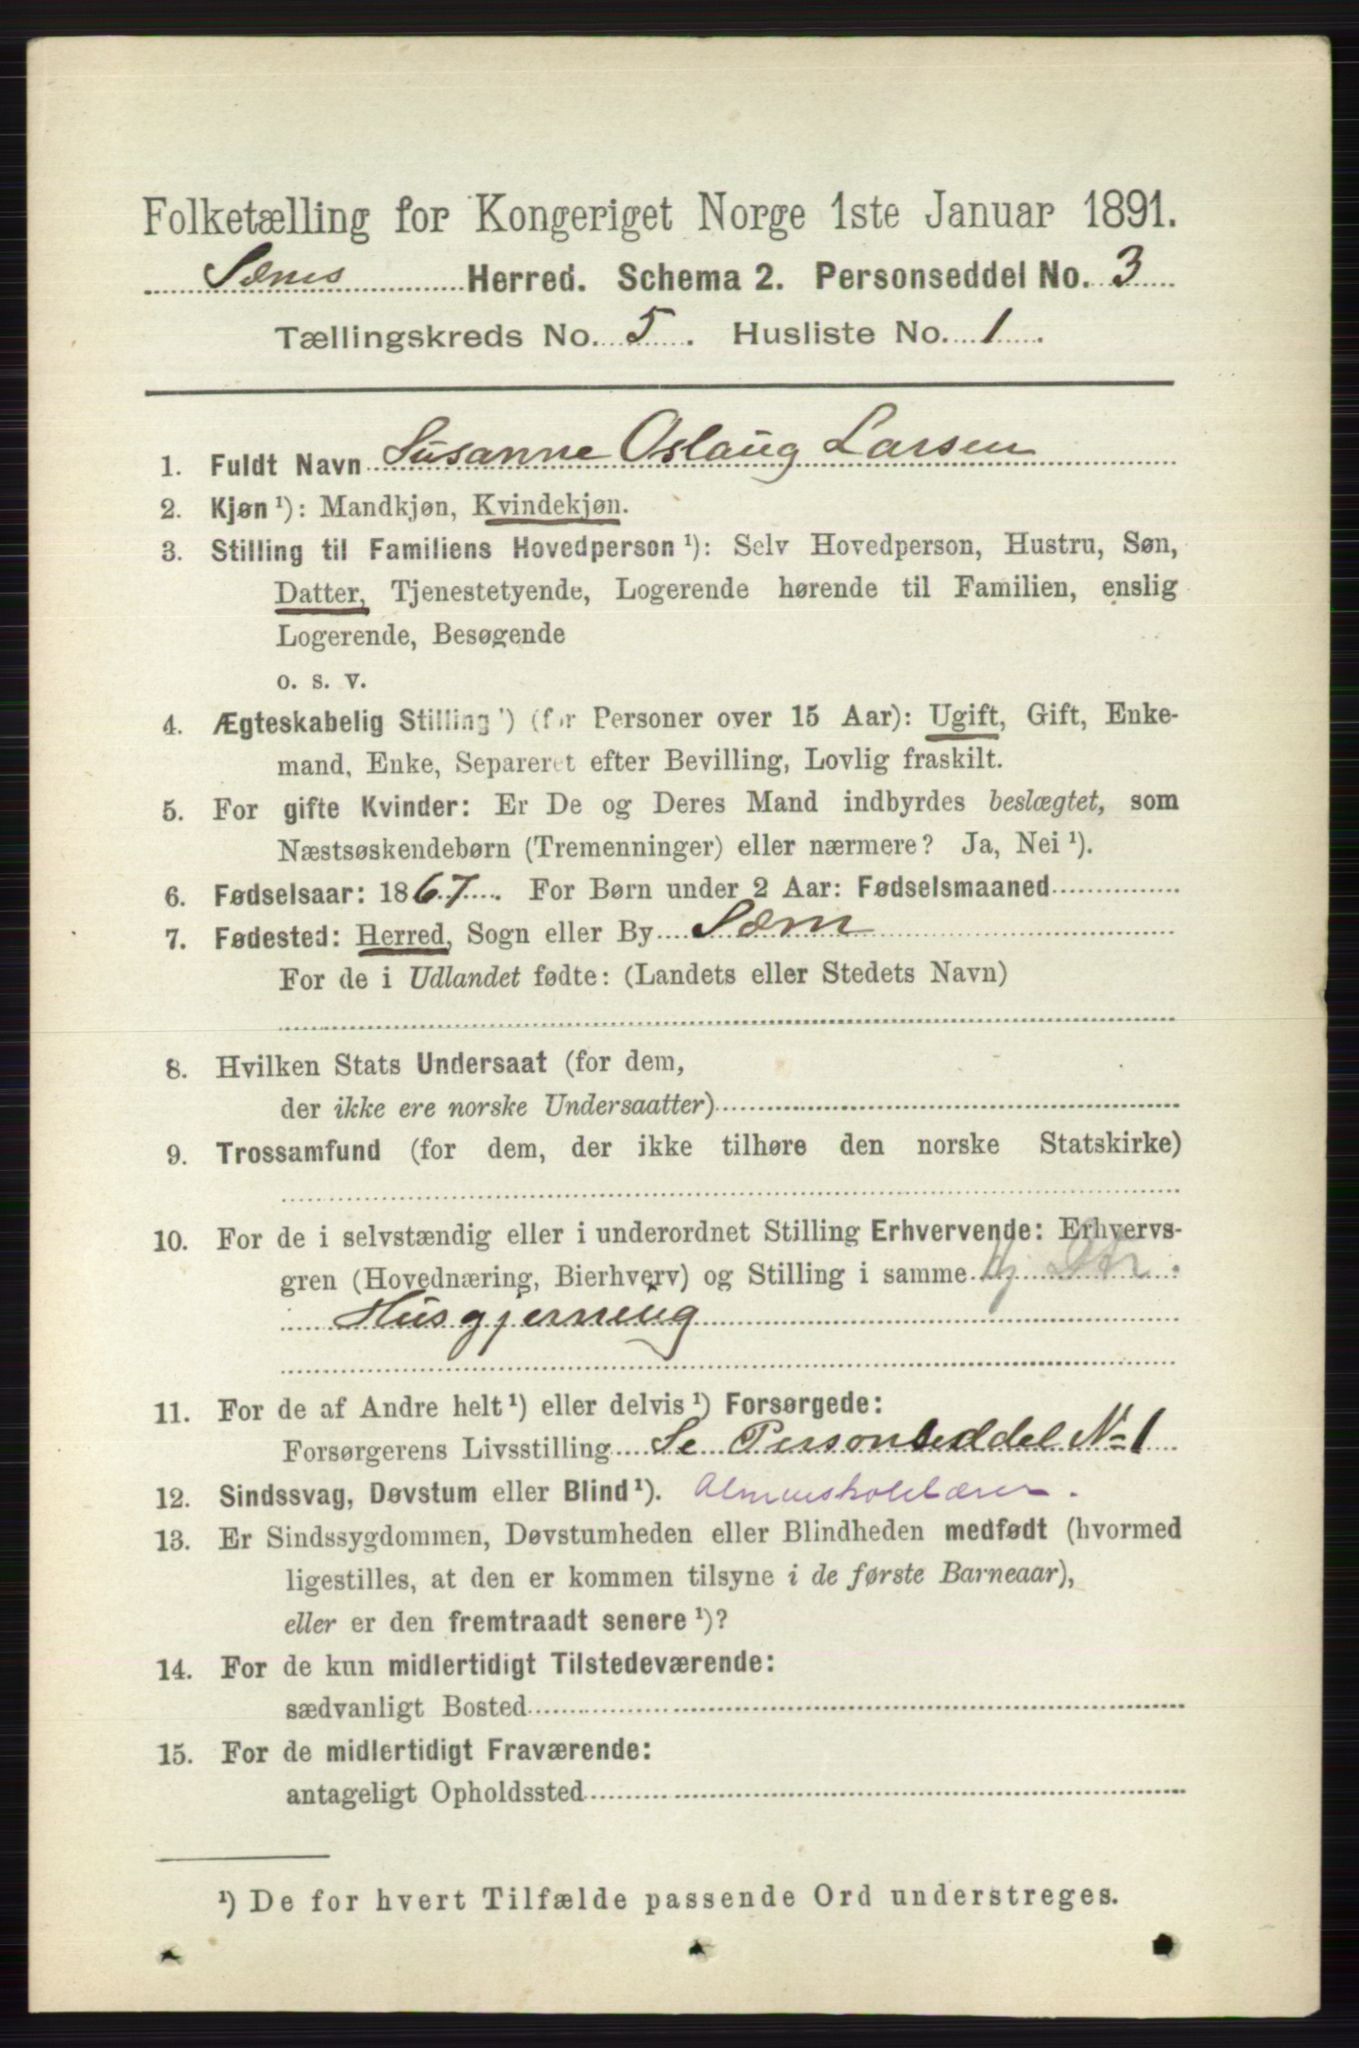 Folketælling for Kongeriget Norge 1ste Januar 1891.
Sæms Herred. Schema 2. Personseddel No. 3
Tællingskreds No. 5. Husliste No. 1.
1. Fuldt Navn Susanne Oslaug Larsen
2. Kjøn ¹): Mandkjøn, Kvindekjøn.
3. Stilling til Familiens Hovedperson ¹): Selv Hovedperson, Hustru, Søn,
Datter, Tjenestetyende, Logerende hørende til Familien, enslig
Logerende, Besøgende
o. s. v.
4. Ægteskabelig Stilling ¹) (for Personer over 15 Aar): Ugift, Gift, Enke-
mand, Enke, Separeret efter Bevilling, Lovlig fraskilt.
5. For gifte Kvinder: Er De og Deres Mand indbyrdes beslægtet, som
Næstsøskendebørn (Tremenninger) eller nærmere? Ja, Nei ¹).
6. Fødselsaar: 1867. For Børn under 2 Aar: Fødselsmaaned
7. Fødested: Herred, Sogn eller By Sæm
For de i Udlandet fødte: (Landets eller Stedets Navn)
8. Hvilken Stats Undersaat (for dem,
der ikke ere norske Undersaatter)
9. Trossamfund (for dem, der ikke tilhøre den norske Statskirke)
10. For de i selvstændig eller i underordnet Stilling Erhvervende: Erhvervs-
gren (Hovednæring, Bierhverv) og Stilling i samme
Husgjerning
11. For de af Andre helt ¹) eller delvis ¹) Forsørgede:
Forsørgerens Livsstilling Se Personseddel No 1
12. Sindssvag, Døvstum eller Blind ¹). Almueskolelærer.
13. Er Sindssygdommen, Døvstumheden eller Blindheden medfødt (hvormed
ligestilles, at den er kommen tilsyne i de første Barneaar),
eller er den fremtraadt senere ¹)?
14. For de kun midlertidigt Tilstedeværende:
sædvanligt Bosted
15. For de midlertidigt Fraværende:
antageligt Opholdssted
¹) De for hvert Tilfælde passende Ord understreges.